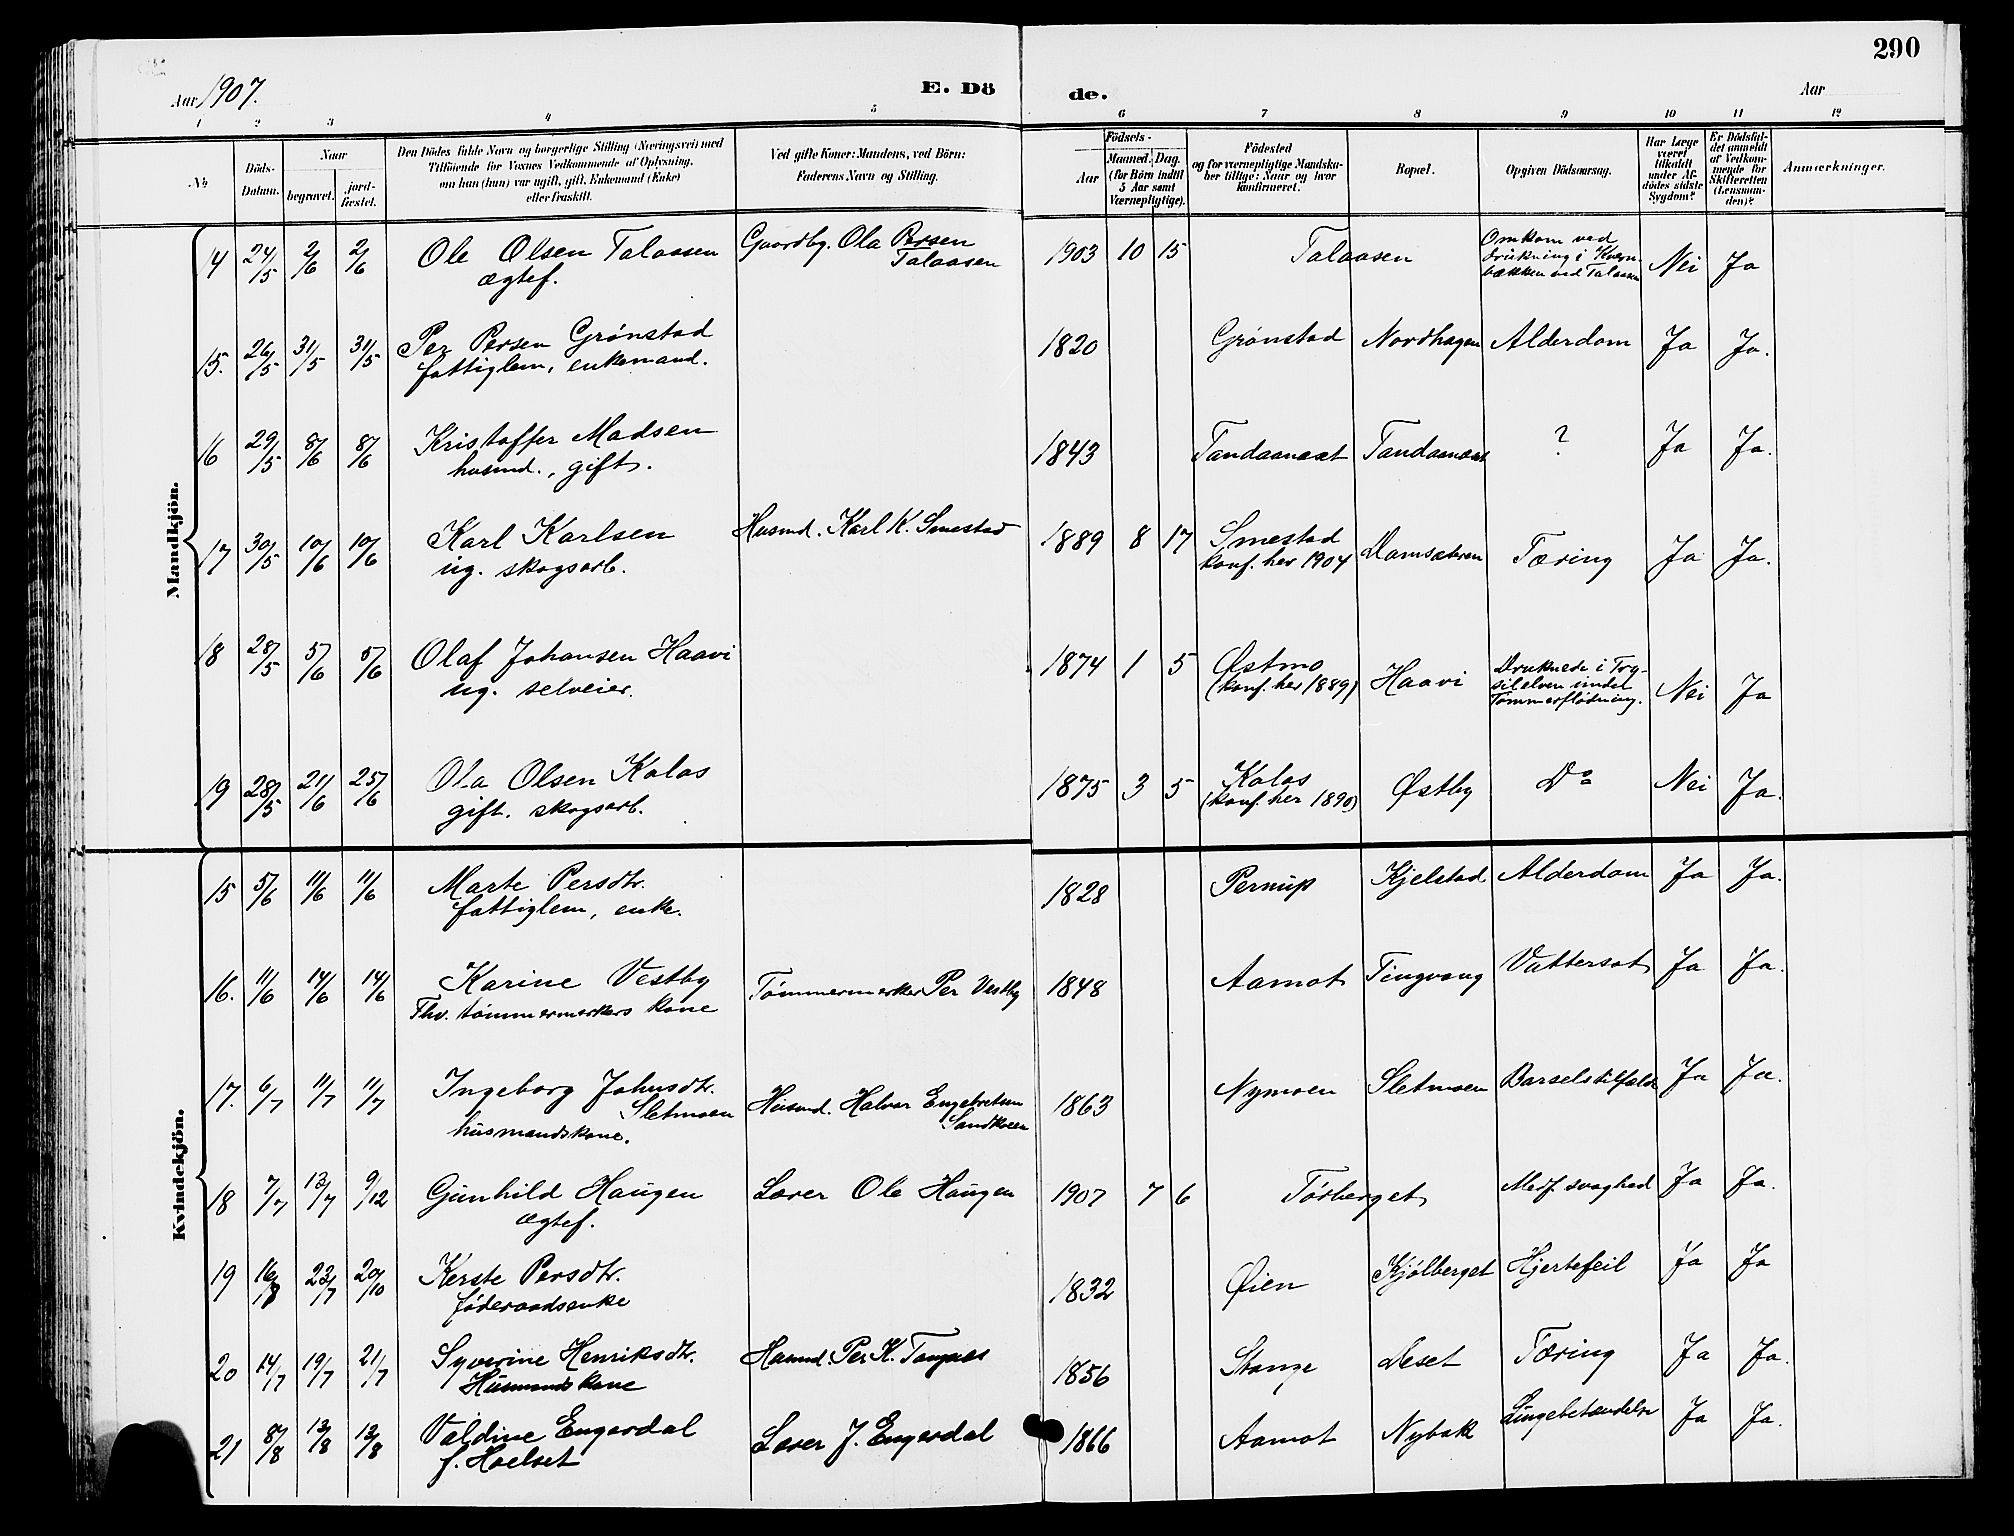 290
Aar 1907.
E. Dö de.
Aar
1 2 3 4 5 6 7 8 9 10 11 12
No
Döds-Datum.
Naar
begravet.
jord-fæstet.
Den Dödes fulde Navn og borgerlige Stilling (Næringsvei) med
Tilföiende for Voxnes Vedkommende af Oplysning,
om han (hun) var ugift, gift, Enkemand (Enke)
eller fraskilt.
Ved gifte Koner: Mandens, ved Börn:
Faderens Navn og Stilling.
Födsels-
Aar
Maaned. Dag.
(for Börn indtil
5 Aar samt
Værnepligtige).
Födested
og for værnepligtige Mandska-
ber tillige: Naar og hvor
konfirmeret.
Bopæl.
Opgiven Dödsaarsag.
Har Læge
været
tilkaldt
under Af-
dödes sidste
Sygdom?
Er Dödsfal-
det anmeldt
af Vedkom-
mende for
Skifteretten
(Lensman-
den)?
Anmærkninger.
Mandkjön.
14 24/5 2/6 2/6 Ole Olsen Talaasen Gaardbr. Ola Persen 1903 10 15 Talaasen Omkom ved Nei Ja
ægtef. Talaasen drukning i Kvern-
bækken ved Talaasen
15. 26/5 31/5 31/5 Per Persen Grønstad 1820 Grønstad Nordhagen Alderdom Ja Ja.
fattiglem, enkemand.
16 29/5 8/6 8/6 Kristoffer Madsen 1843 Tandaanæst Tandaanæst ? Ja Ja.
husmd., gift.
17 30/5 10/6 10/6 Karl Karlsen Husmd. Karl K. Smestad 1889 8 17 Smestad Damsæteren Tæring Ja Ja.
ug. skogsarb. konf. her 1904
18 28/5 5/6 5/6 Olaf Johansen Haavi 1874 1 5 Østmo Haavi Druknede i Try- Nei Ja
ug. selveier. (konf. her 1889) silelven under
Tømmerflødning.
19 28/5 21/6 25/6 Ola Olsen Kolos 1875 3 5 Kolos Østby Do Nei Ja.
gift. skogsarb. (konf. her 1890)
Kvindekjön.
15 5/6 11/6 11/6 Marte Persdtr. 1828 Pernup Kjelstad Alderdom Ja Ja.
fattiglem, enke.
16. 11/6 14/6 14/6 Karine Vestby Tømmermerker Per Vestby 1848 Aamot Tingvang Vattersot Ja Ja.
Fhv. tømmermerkers kone
17. 6/7 11/7 11/7 Ingeborg Johnsdtr. Husmd. Halvor Engebretsen 1863 Nymoen Sletmoen Barselstilfælde Ja Ja.
Sletmoen
husmandskone.
18 7/7 13/7 9/12 Gunhild Haugen Lærer Ole Haugen 1907 7 6 Tørberget Medf. svaghed Ja Ja.
ægtef.
19 16/8 23/7 20/10 Kerste Persdtr. 1832 Øien Kjølberget Hjertefeil Ja Ja
føderaadsenke
20 14/7 19/7 21/7 Syverine Henriksdtr. Husmd. Per K. Tangnes 1856 Stange Deset Tæring Ja Ja.
Husmandskone
21 8/8 13/8 13/8 Valdine Engerdal Lærer J. Engerdal 1866 Aamot Nybak Lungebetændelse Ja Ja.
f. Hoelset